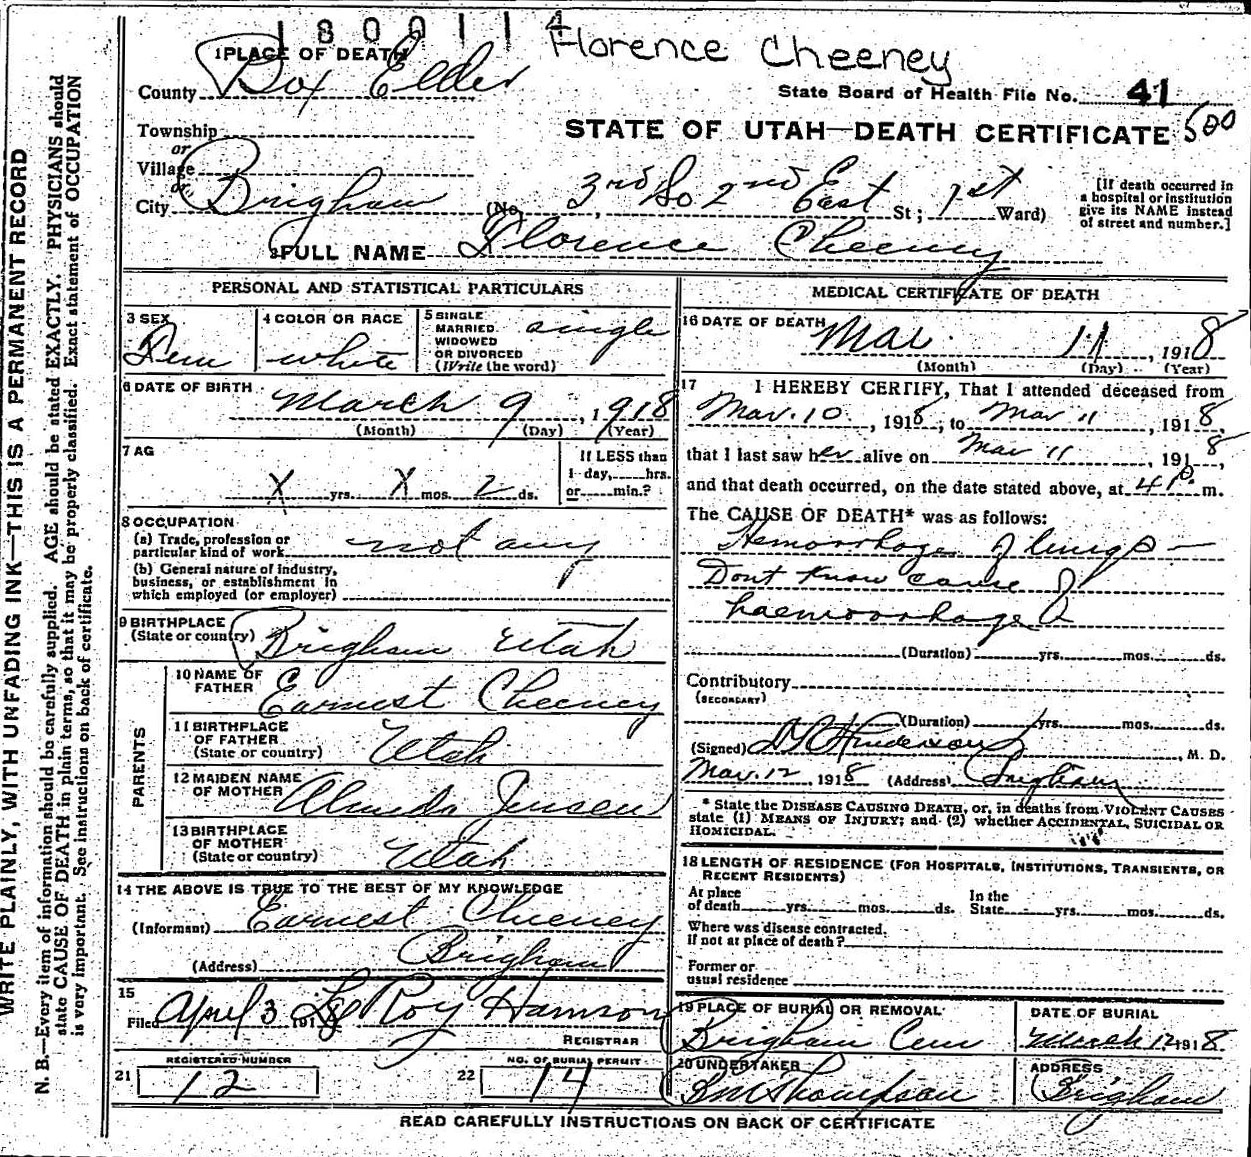 1800114
Florence Cheeney
1 PLACE OF DEATH
County Box Elder
State Board of Health File No. 41
Township
or
STATE OF UTAH—DEATH CERTIFICATE 500
Village
or
City Brigham (No. 3rd So 2nd East St; 1st Ward)
[If death occurred in a hospital or institution give its NAME instead of street and number.]
2 FULL NAME Florence Cheeney
PERSONAL AND STATISTICAL PARTICULARS
3 SEX Fem
4 COLOR OR RACE white
5 SINGLE MARRIED WIDOWED OR DIVORCED (Write the word) single
6 DATE OF BIRTH March 9, 1918
(Month) (Day) (Year)
7 AG
X yrs. X mos. 2 ds.
If LESS than 1 day, hrs. or min.?
8 OCCUPATION
(a) Trade, profession or particular kind of work not any
(b) General nature of industry, business, or establishment in which employed (or employer)
9 BIRTHPLACE (State or country) Brigham Utah
PARENTS
10 NAME OF FATHER Earnest Cheeney
11 BIRTHPLACE OF FATHER (State or country) Utah
12 MAIDEN NAME OF MOTHER Jensen
13 BIRTHPLACE OF MOTHER (State or country) Utah
14 THE ABOVE IS TRUE TO THE BEST OF MY KNOWLEDGE
(Informant) Earnest Cheeney
(Address) Brigham
15
Filed April 3 1918 Le Roy
REGISTRAR
REGISTERED NUMBER
21 12
NO. OF BURIAL PERMIT
22 14
MEDICAL CERTIFICATE OF DEATH
16 DATE OF DEATH Mar 11, 1918
(Month) (Day) (Year)
17 I HEREBY CERTIFY, That I attended deceased from
Mar. 10, 1918; to Mar 11, 1918,
that I last saw her alive on Mar 11, 1918,
and that death occurred, on the date stated above, at 4 P. m.
The CAUSE OF DEATH* was as follows:
Hemorrhage of lungs —
Dont know cause of
haemorrhage
(Duration) yrs. mos. ds.
Contributory
(SECONDARY)
(Duration) yrs. mos. ds.
(Signed) Henderson, M. D.
Mar. 12, 1918 (Address) Brigham
* State the DISEASE CAUSING DEATH, or, in deaths from VIOLENT CAUSES
state (1) MEANS OF INJURY; and (2) whether ACCIDENTAL, SUICIDAL OR
HOMICIDAL.
18 LENGTH OF RESIDENCE (FOR HOSPITALS, INSTITUTIONS, TRANSIENTS, OR
RECENT RESIDENTS)
At place of death yrs. mos. ds. In the State yrs. mos. ds.
Where was disease contracted,
if not at place of death?
Former or
usual residence
19 PLACE OF BURIAL OR REMOVAL Brigham Cem
DATE OF BURIAL March 12 1918
20 UNDERTAKER Thompson
ADDRESS Brigham
READ CAREFULLY INSTRUCTIONS ON BACK OF CERTIFICATE
WRITE PLAINLY, WITH UNFADING INK—THIS IS A PERMANENT RECORD
N. B.—Every item of information should be carefully supplied. AGE should be stated EXACTLY. PHYSICIANS should
state CAUSE OF DEATH in plain terms, so that it may be properly classified. Exact statement of OCCUPATION
is very important. See instructions on back of certificate.